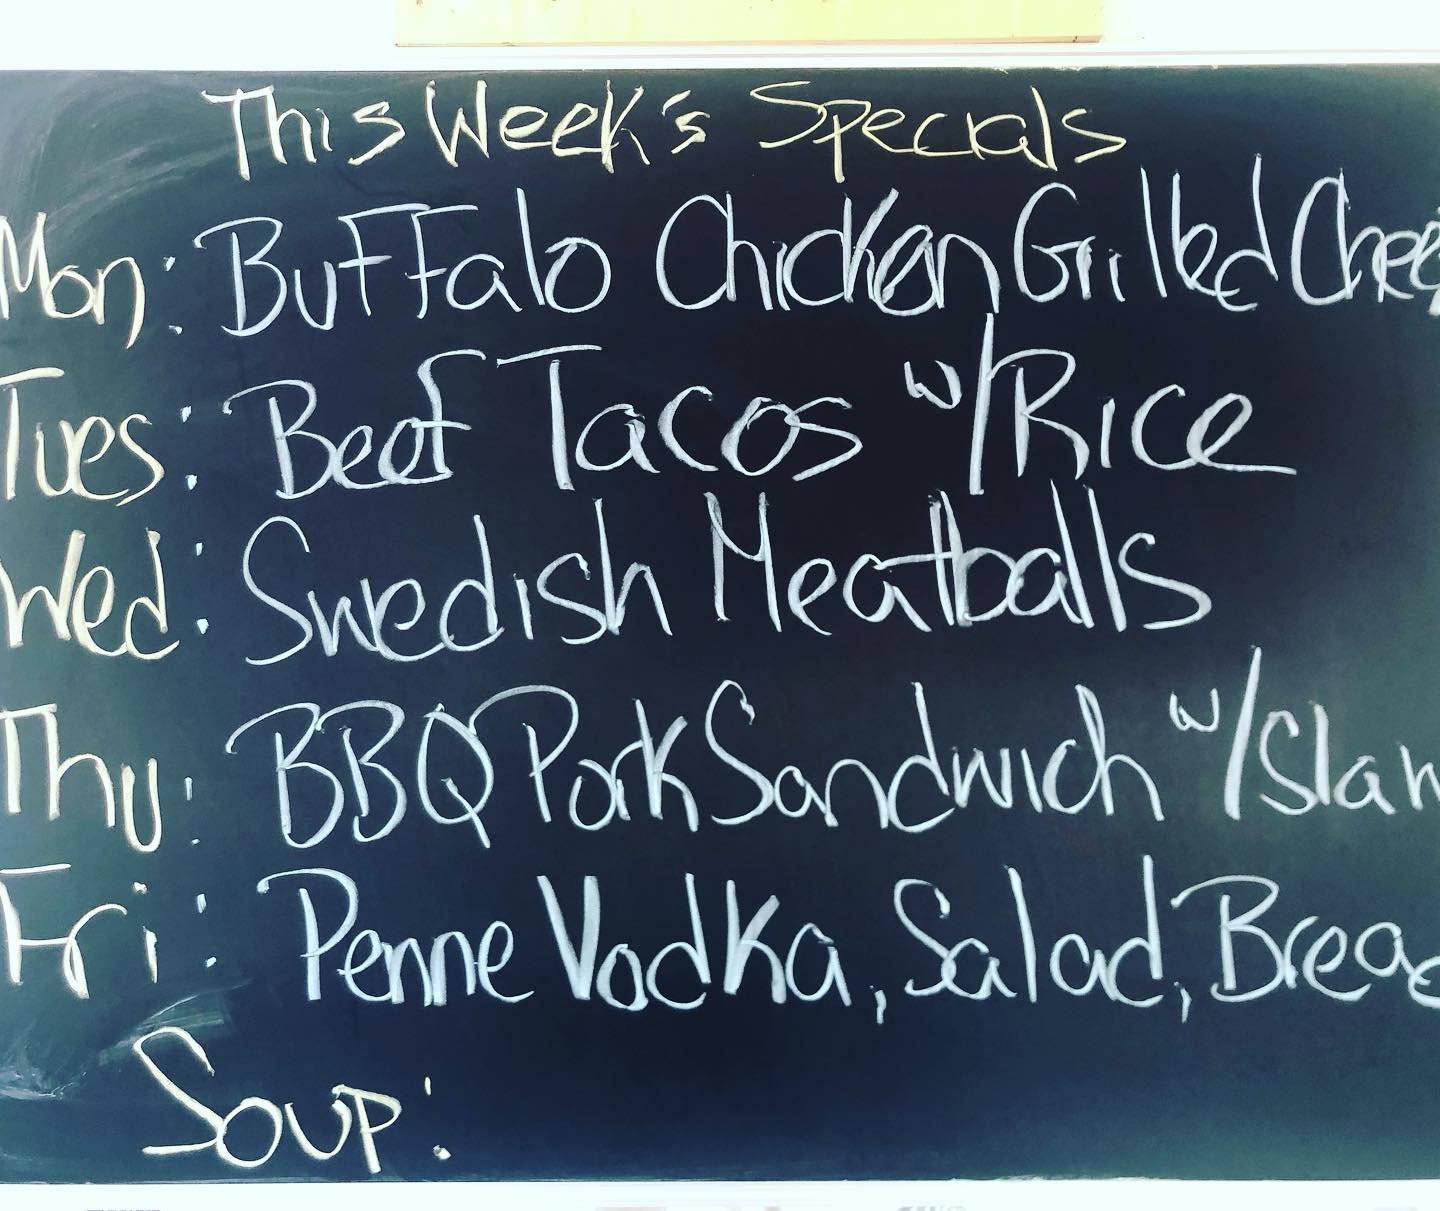 This Week's Specials
Mon: Buffalo Chicken Grilled Chee
Tues: Beef Tacos w/Rice
Wed: Swedish Meatballs
Thu: BBQ Pork Sandwich w/Slaw
Fri: Penne Vodka, Salad, Bread
Soup: